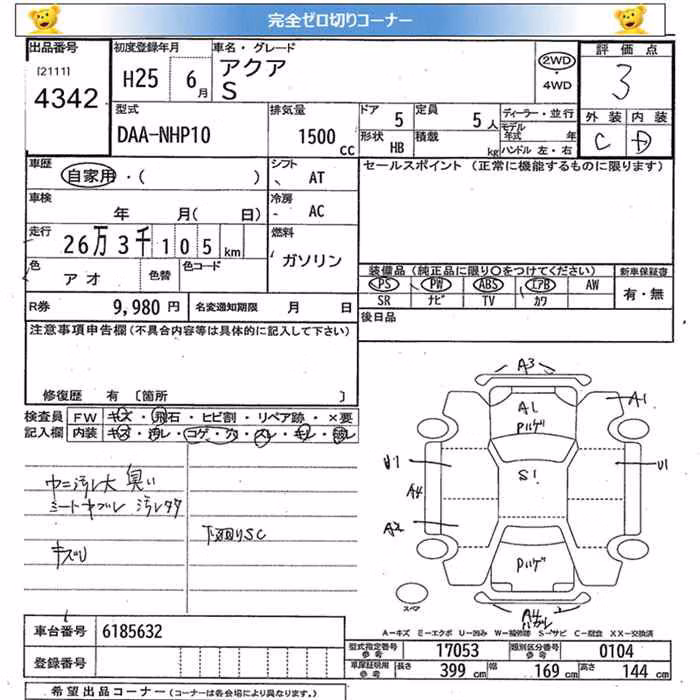 完全ゼロ切りコーナー
出品番号
[2111]
4342
初度登録年月
H25 6月
車名・グレード
アクア
S
2WD
・
4WD
評価点
3
外装 内装
C D
型式
DAA-NHP10
排気量
1500 CC
ドア 5
定員 5人
形状 HB
積載 kg
ディーラー・並行
モデル年式 年
ハンドル 左・右
車歴
自家用・( )
シフト
AT
セールスポイント (正常に機能するものに限ります)
車検
年 月( 日)
冷房
AC
走行
26万3千105km
燃料
ガソリン
色
アオ
色替
色コード
装備品(純正品に限り○をつけてください)
PS PW ABS エアB AW
SR ナビ TV カワ
新車保証書
有・無
R券 9,980円
名変通知期限 月 日
後日品
注意事項申告欄(不具合内容等は具体的に記入して下さい)
修復歴 有 [箇所 ]
検査員記入欄
FW キズ・飛石・ヒビ割・リペア跡・×要
内装 キズ・汚レ・コゲ・穴・スレ・キレ・
ウニ汚レ大 臭い
シートヤブレ 汚レ
キズU
下廻りSC
A3
A1
A1
ハゲ
U1
S1
U1
A4
A2
ハゲ
スペア
A4
A-キズ M-エクボ U-凹み W-補修跡 S-サビ C-腐食 XX-交換済
車台番号 6185632
登録番号
型式指定番号 参考 17053
類別区分番号 参考 0104
車庫証明用 参考 長さ 399 cm 幅 169 cm 高さ 144 cm
希望出品コーナー(コーナーは各会場により異なります。)